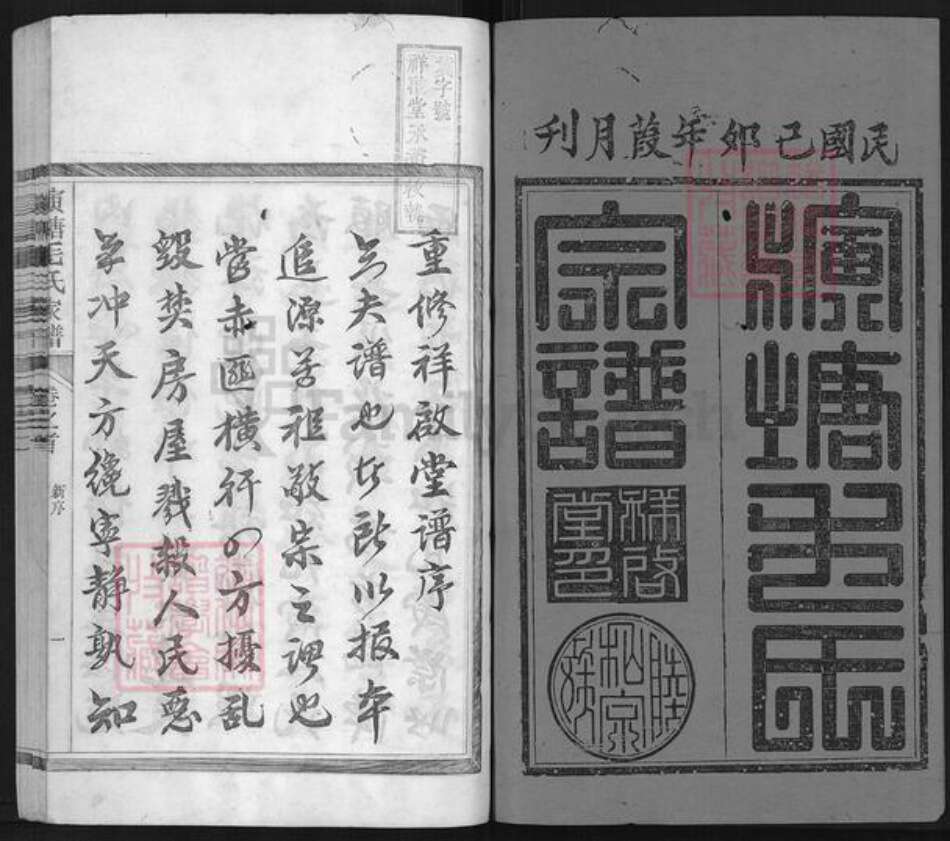 民國己卯年葭月刊
演塘毛氏
宗譜
祥啟堂印
字號
祥啟堂
重修祥啟堂譜序
夫譜也者所以报本
追源尊祖敬宗之謂也
當赤匪橫行四方擾乱
毀焚房屋戮殺人民惡
冲天方纔寧靜孰知
演塘毛氏家譜 卷之首 新序 一